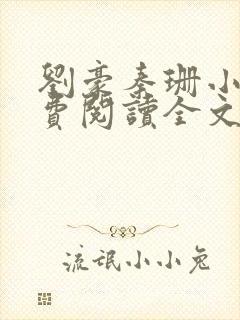 劉豪秦珊小
費閱讀全文
流氓小小兔